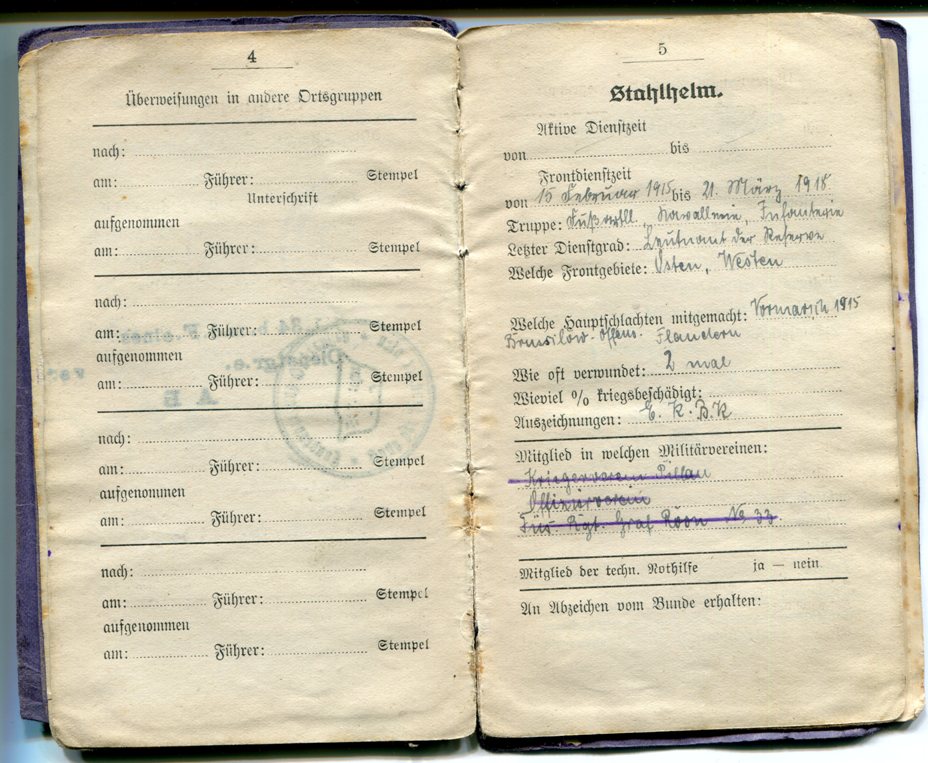 4
Überweisungen in andere Ortsgruppen
nach:
am: Führer: Stempel
Unterschrift
aufgenommen
am: Führer: Stempel
nach:
am: Führer: Stempel
aufgenommen
am: Führer: Stempel
nach:
am: Führer: Stempel
aufgenommen
am: Führer: Stempel
nach:
am: Führer: Stempel
aufgenommen
am: Führer: Stempel
5
Stahlhelm.
Aktive Dienstzeit
von bis
Frontdienstzeit
von 15 Februar 1915 bis 21. März 1918
Truppe: Kavallerie, Infanterie
Letzter Dienstgrad: Leutnant der Reserve
Welche Frontgebiete: Osten, Westen
Welche Hauptschlachten mitgemacht: Vormarsch 1915
Brussilow. Offens. Flandern
Wie oft verwundet: 2 mal
Wieviel % kriegsbeschädigt:
Auszeichnungen: E. K. B. K
Mitglied in welchen Militärvereinen:
Kriegerverein Pillau
Offizierverein
Füs Rgt. Graf Roon No 33
Mitglied der techn. Nothilfe ja — nein
An Abzeichen vom Bunde erhalten: